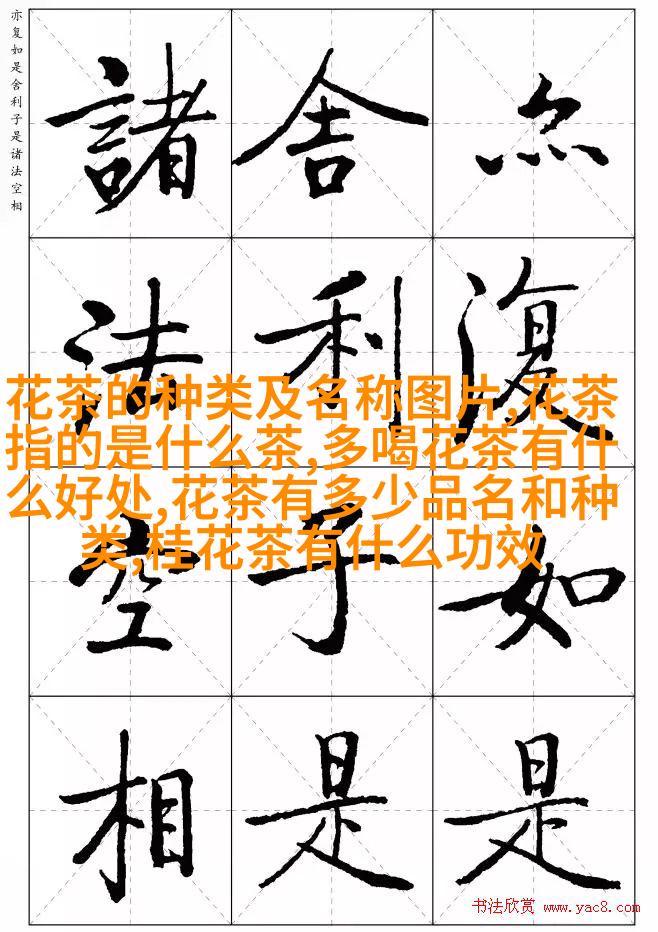 亦复如是舍利子是诸法空相
亦復如是
舍利子是
諸法空相
花茶的种类及名称图片,花茶
指的是什么茶,多喝花茶有什
么好处,花茶有多少品名和种
类,桂花茶有什么功效
书法欣赏 www.yac8.com